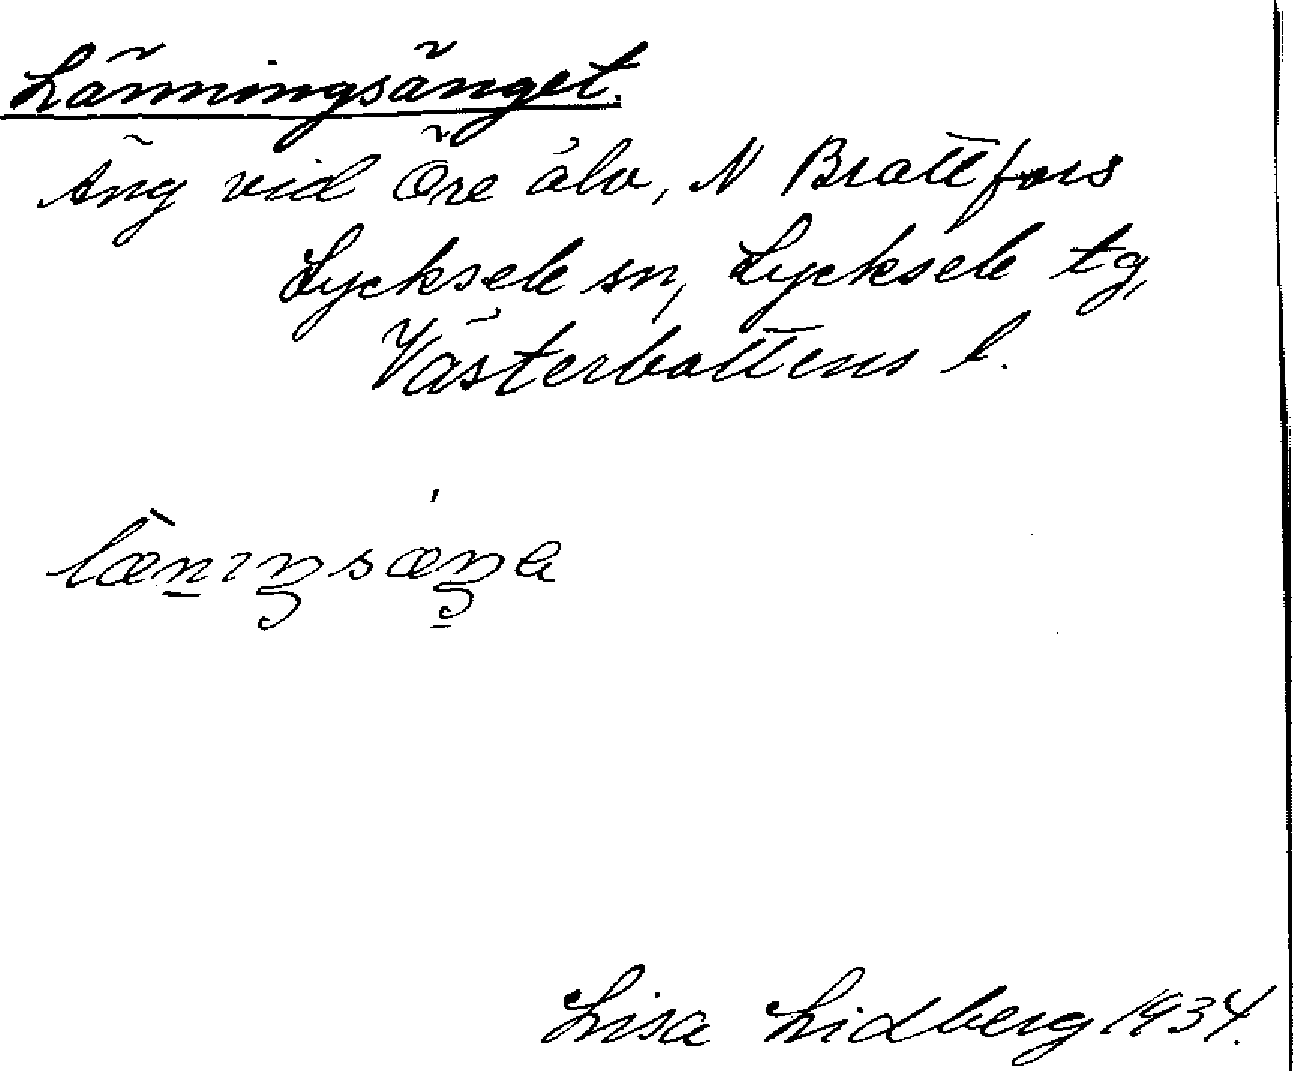 Länningsänget.
Äng vid Öre älv, N Brattfors
Lycksele sn, Lycksele tg,
Västerbottens l.
Lisa Lidberg 1934.